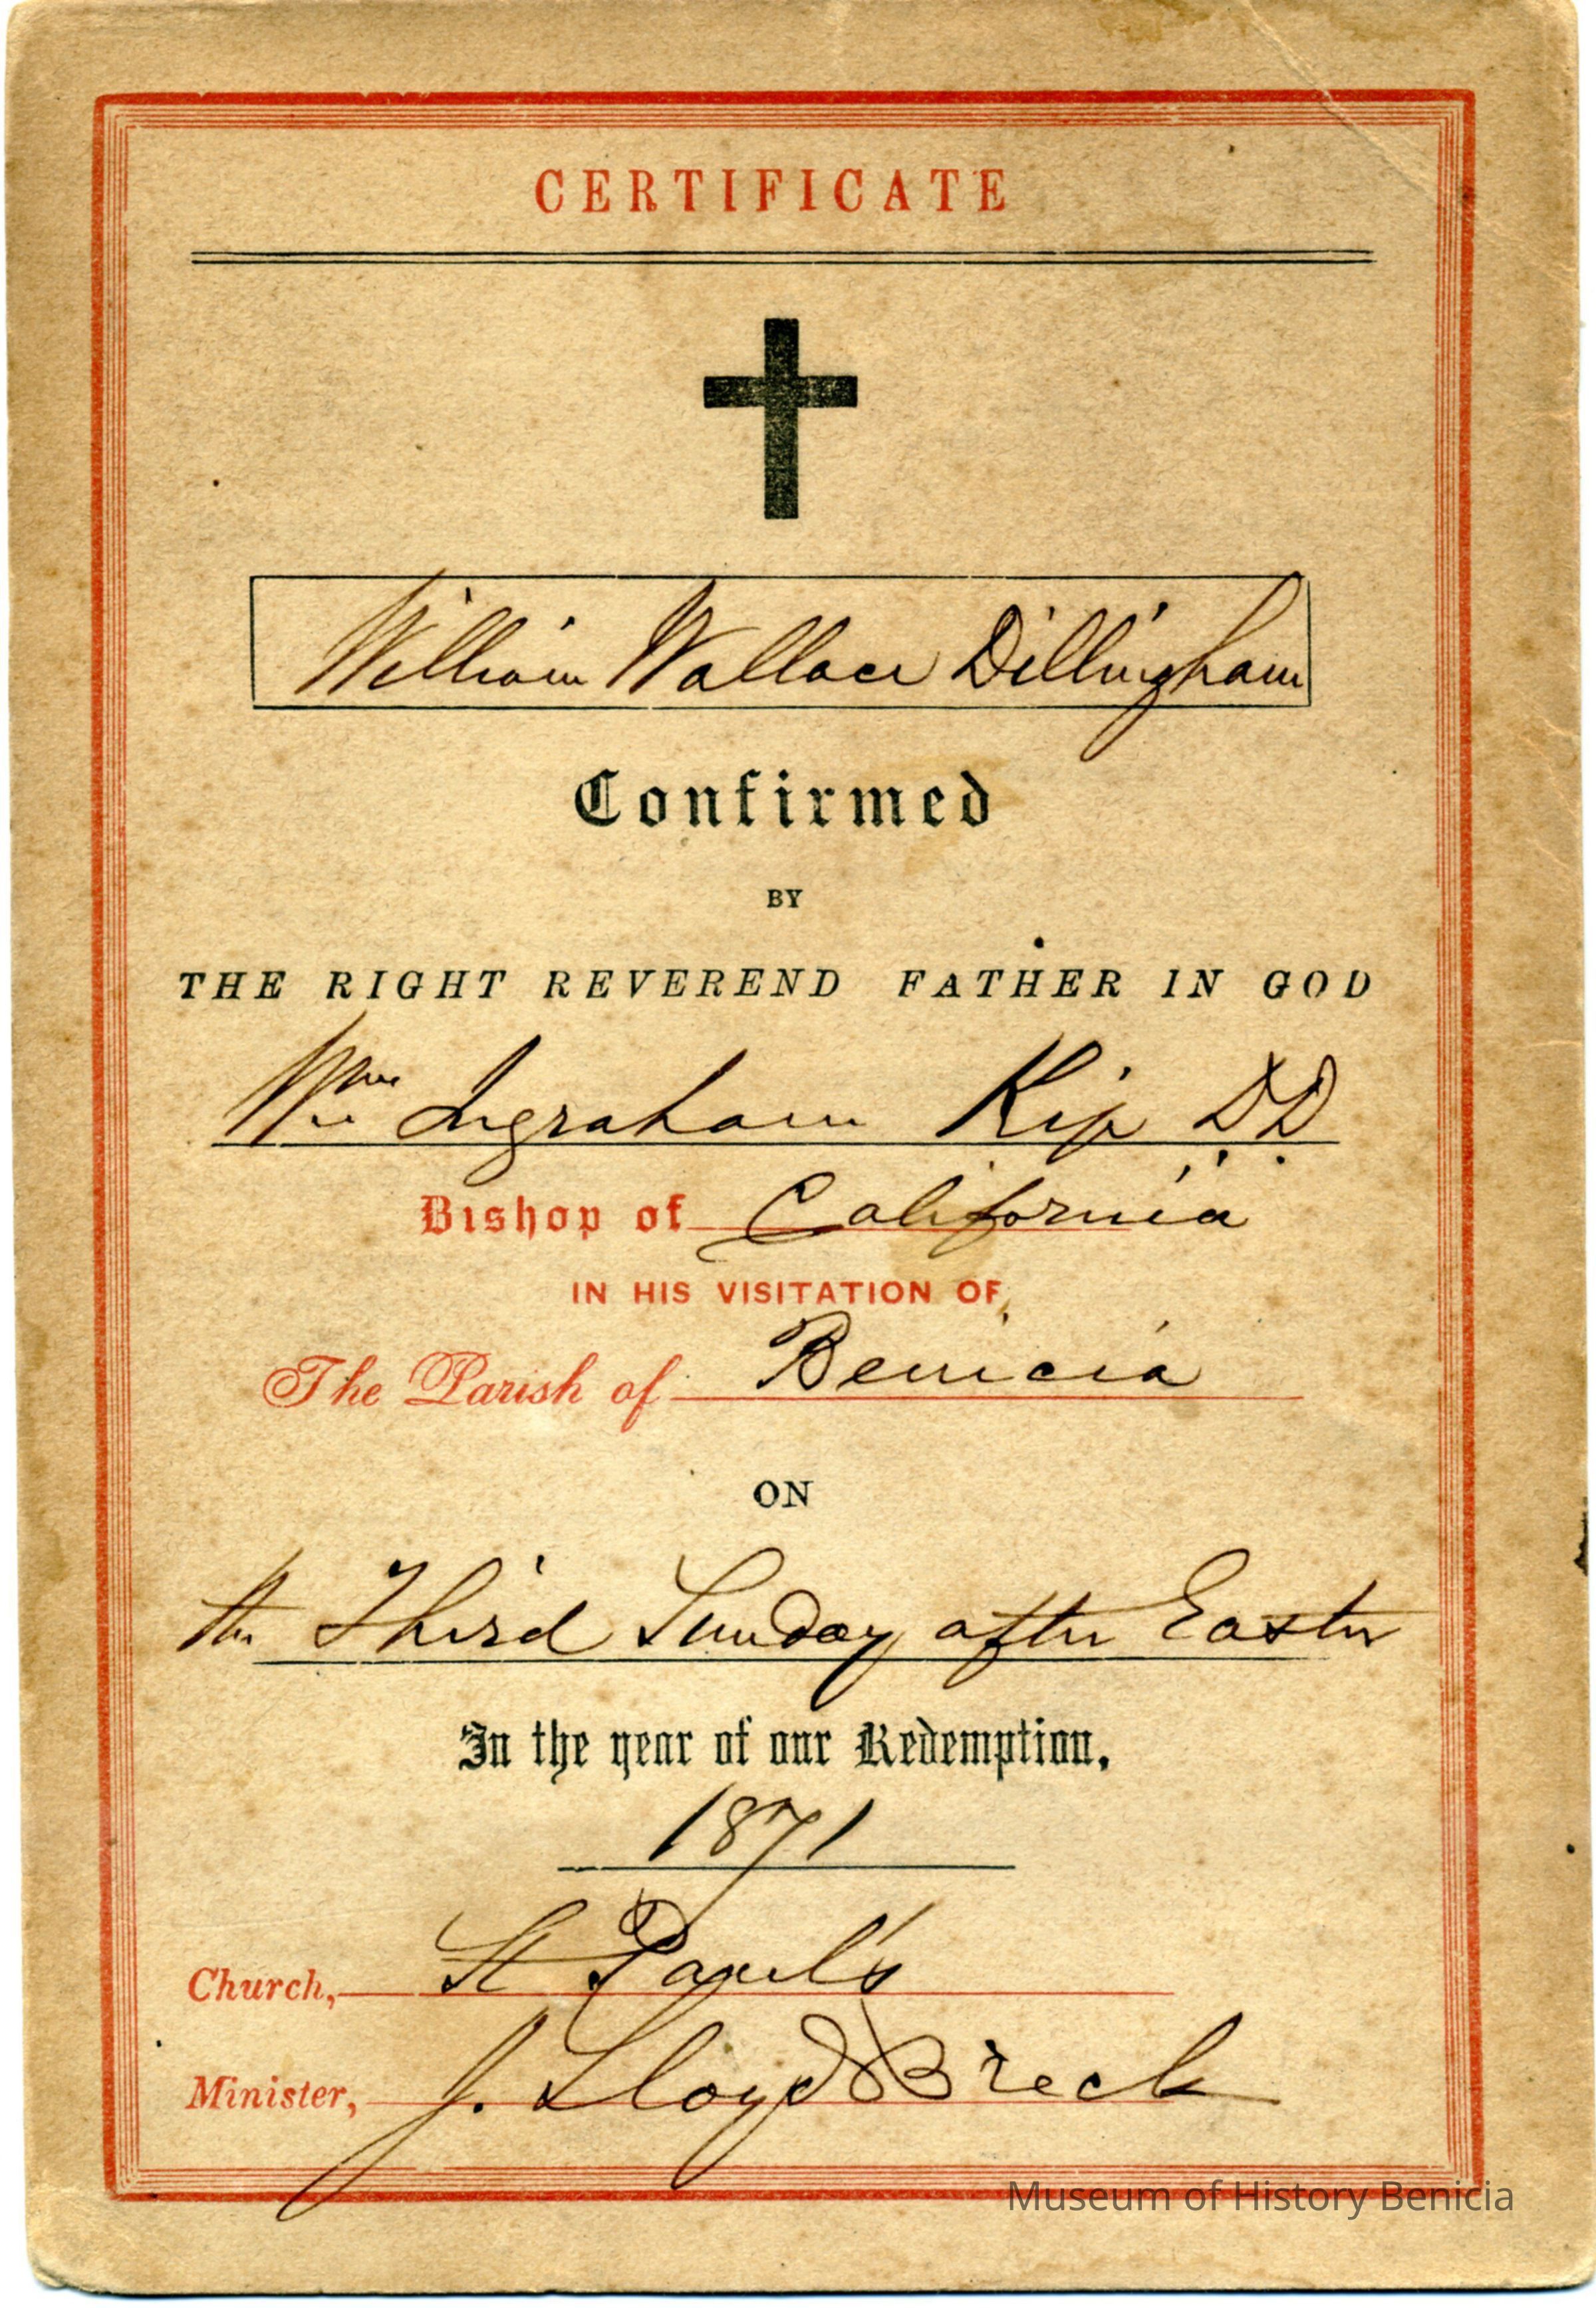 CERTIFICATE
William Wallace Dillingham
Confirmed
BY
THE RIGHT REVEREND FATHER IN GOD
Wm Ingraham Kip DD
Bishop of California
IN HIS VISITATION OF
The Parish of Benicia
ON
the Third Sunday after Easter
In the year of our Redemption,
1871
Church, St Paul's
Minister, J. Lloyd Breck
Museum of History Benicia